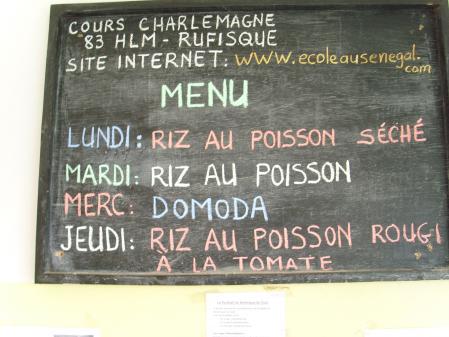 COURS CHARLEMAGNE
83 HLM - RUFISQUE
SITE INTERNET: www.ecoleausenegal.
com
MENU
LUNDI: RIZ AU POISSON SÉCHÉ
MARDI: RIZ AU POISSON
MERC: DOMODA
JEUDI: RIZ AU POISSON ROUGI
À LA TOMATE